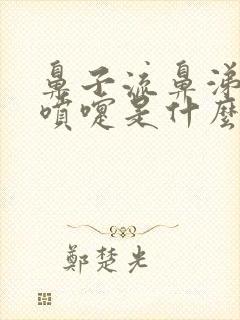 鼻子流鼻涕
噴嚏是什麼
鄭楚光